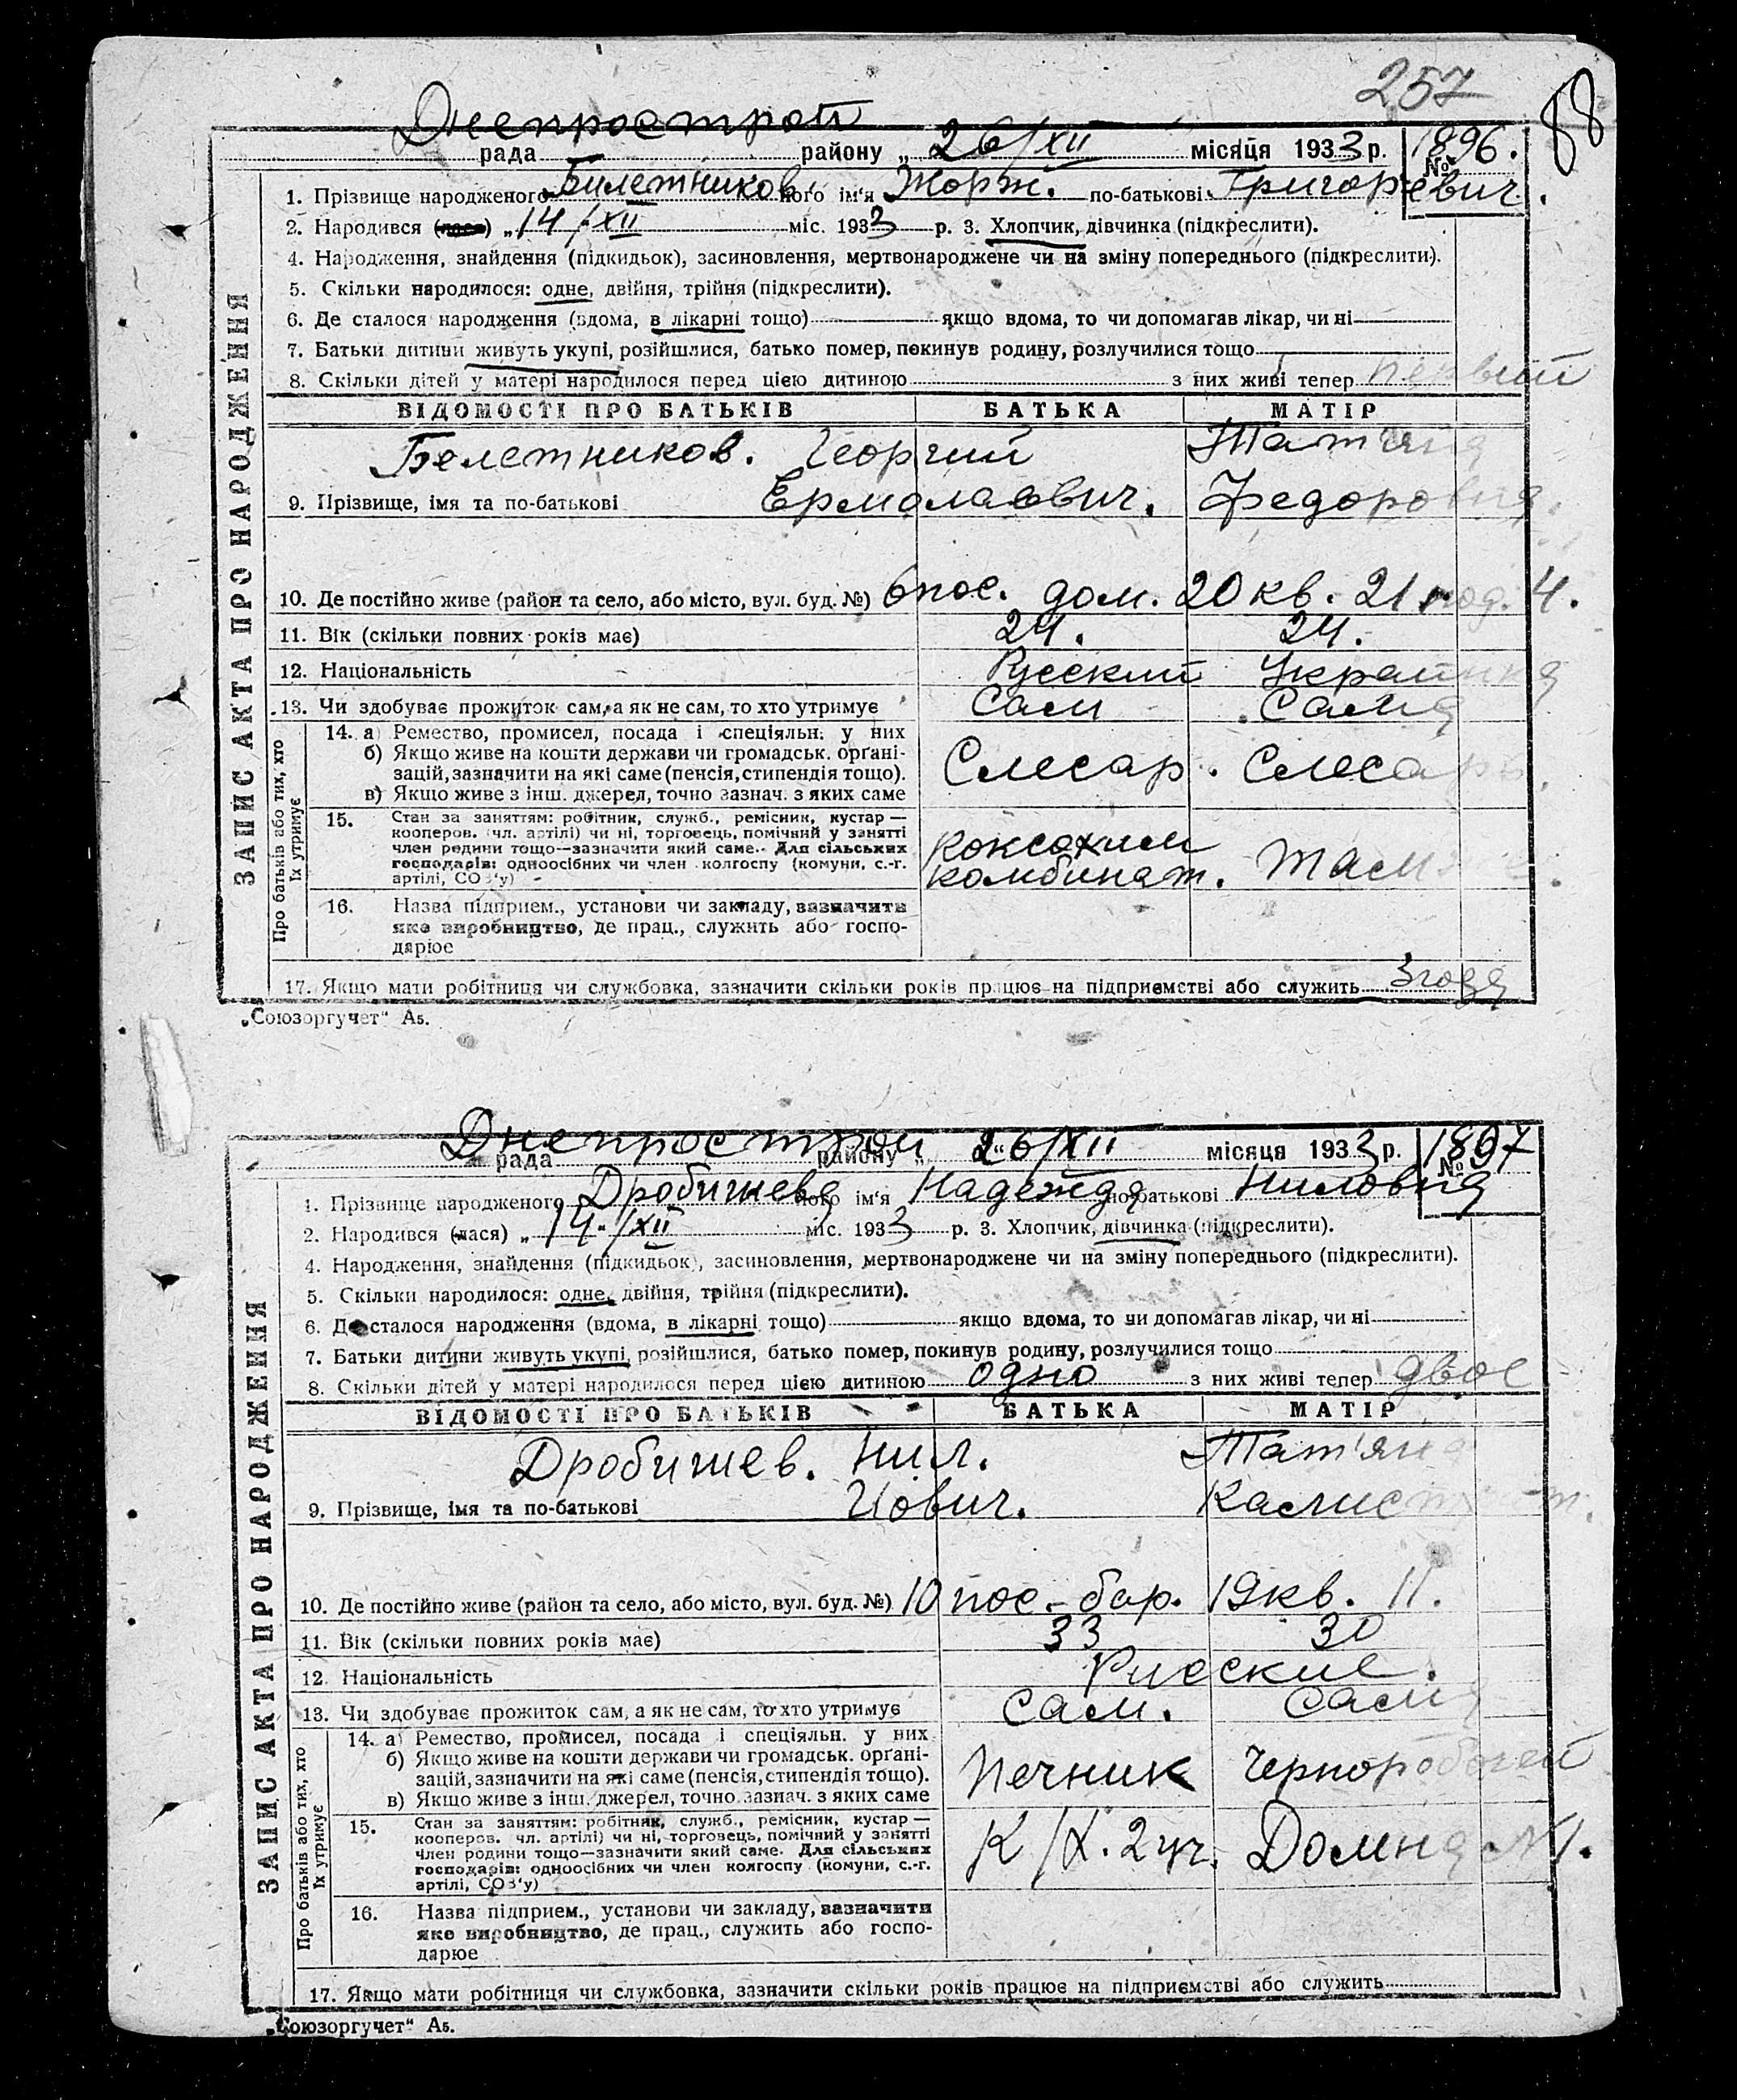 257
88
Днепрострой
рада району „ 26/XII місяця 1933 р. № 1896.
1. Прізвище народженого Билетников його ім'я Жорж. по-батькові Григорьевич.
2. Народився (лася) „ 14/XII міс. 1933 р. 3. Хлопчик, дівчинка (підкреслити).
4. Народження, знайдення (підкидьок), засиновлення, мертвонароджене чи на зміну попереднього (підкреслити).
5. Скільки народилося: одне, двійня, трійня (підкреслити).
6. Де сталося народження (вдома, в лікарні тощо) якщо вдома, то чи допомагав лікар, чи ні
7. Батьки дитини живуть укупі, розійшлися, батько помер, покинув родину, розлучилися тощо
8. Скільки дітей у матері народилося перед цією дитиною з них живі тепер первый
ВІДОМОСТІ ПРО БАТЬКІВ БАТЬКА МАТІР
Белетников. Георгий Татьяна
9. Прізвище, імя та по-батькові Ермолаевич. Федоровна.
10. Де постійно живе (район та село, або місто, вул. буд. №) 6 пос. дом. 20 кв. 21 под. 4.
11. Вік (скільки повних років має) 24. 24.
12. Національність Русский Украинка
13. Чи здобуває прожиток сам, а як не сам, то хто утримує Сам Сама
14. а) Ремество, промисел, посада і спеціяльн. у них
б) Якщо живе на кошти держави чи громадськ. орґані-
зацій, зазначити на які саме (пенсія, стипендія тощо). Слесар. Слесарь.
в) Якщо живе з інш. джерел, точно зазнач. з яких саме
15. Стан за заняттям: робітник, служб., ремісник, кустар —
кооперов. (чл. артілі) чи ні, торговець, помічний у занятті
член родини тощо—зазначити який саме. Для сільських
господарів: одноосібних чи член колгоспу (комуни, с.-г.
артілі, СОЗ'у)
Коксохим
комбинат. там же.
16. Назва підприєм., установи чи закладу, зазначити
яке виробництво, де прац., служить або госпо-
дарює
17. Якщо мати робітниця чи службовка, зазначити скільки років працює на підприємстві або служить 3 года
ЗАПИС АКТА ПРО НАРОДЖЕННЯ
Про батьків або тих, хто
їх утримує
„Союзоргучет“ А5.
Днепрострой
рада району „ 26/XII місяця 1933 р. № 1897
1. Прізвище народженого Дробишева його ім'я Надежда по-батькові Ниловна
2. Народився (лася) „ 14./XII міс. 1933 р. 3. Хлопчик, дівчинка (підкреслити).
4. Народження, знайдення (підкидьок), засиновлення, мертвонароджене чи на зміну попереднього (підкреслити).
5. Скільки народилося: одне, двійня, трійня (підкреслити).
6. Де сталося народження (вдома, в лікарні тощо) якщо вдома, то чи допомагав лікар, чи ні
7. Батьки дитини живуть укупі, розійшлися, батько помер, покинув родину, розлучилися тощо
8. Скільки дітей у матері народилося перед цією дитиною одно з них живі тепер двое
ВІДОМОСТІ ПРО БАТЬКІВ БАТЬКА МАТІР
Дробишев. Нил. Тат'яна
9. Прізвище, імя та по-батькові Иович. Калистрат.
10. Де постійно живе (район та село, або місто, вул. буд. №) 10 пос. - бар. 19 кв. 11.
11. Вік (скільки повних років має) 33 30
12. Національність Русские.
13. Чи здобуває прожиток сам, а як не сам, то хто утримує Сам. Сама
14. а) Ремество, промисел, посада і спеціяльн. у них
б) Якщо живе на кошти держави чи громадськ. орґані-
зацій, зазначити на які саме (пенсія, стипендія тощо). Печник Чернорабочей
в) Якщо живе з інш. джерел, точно зазнач. з яких саме
15. Стан за заняттям: робітник, служб., ремісник, кустар —
кооперов. чл. артілі) чи ні, торговець, помічний у занятті
член родини тощо—зазначити який саме. Для сільських
господарів: одноосібних чи член колгоспу (комуни, с.-г.
артілі, СОЗ'у)
К/Х. 2 уч. Домна №1.
16. Назва підприєм., установи чи закладу, зазначити
яке виробництво, де прац., служить або госпо-
дарює
17. Якщо мати робітниця чи службовка, зазначити скільки років працює на підприємстві або служить
ЗАПИС АКТА ПРО НАРОДЖЕННЯ
Про батьків або тих, хто
їх утримує
„Союзоргучет“ А5.